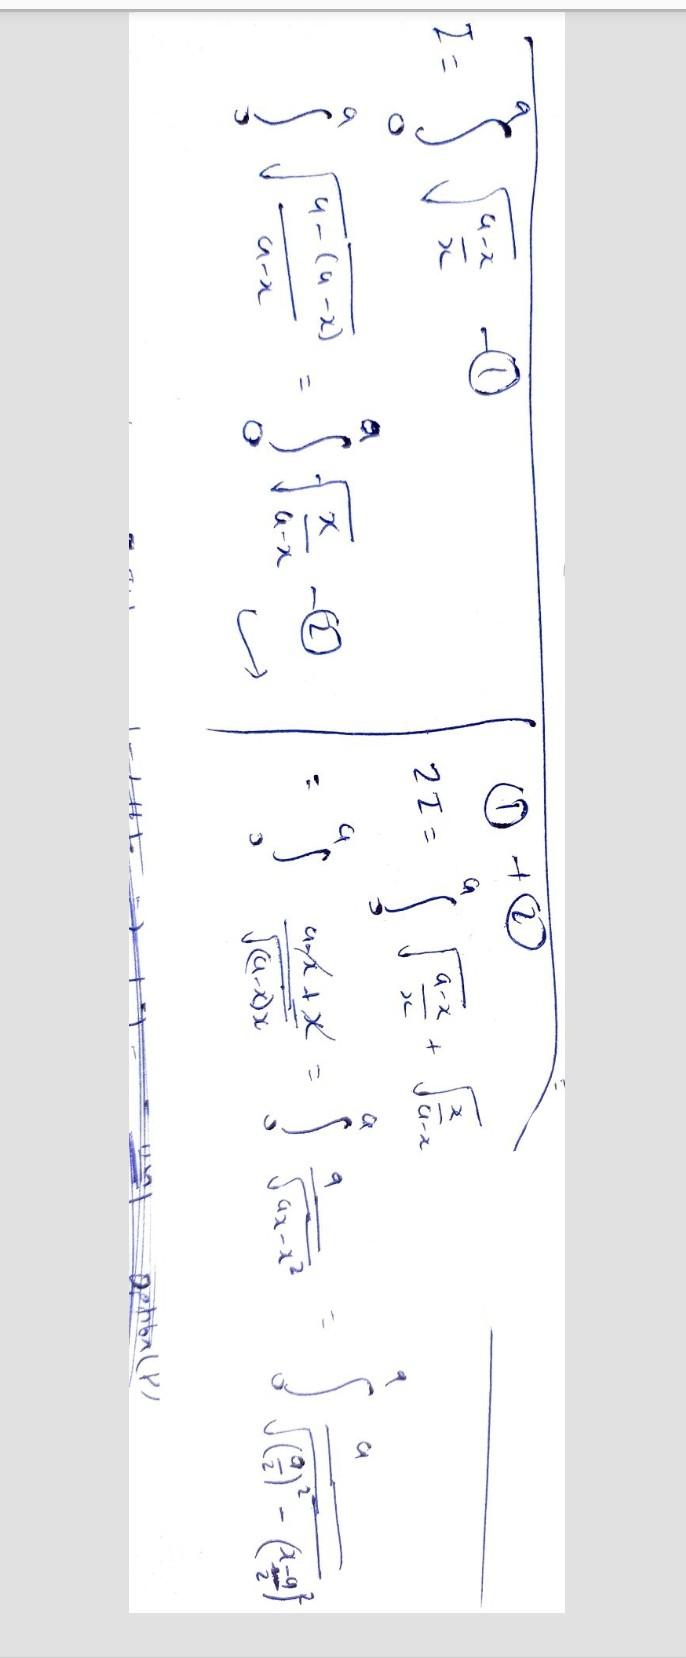 I = ∫₀ᵃ √((a-x)/x) -①
∫₀ᵃ √((a-(a-x))/(a-x)) = ∫₀ᵃ √(x/(a-x)) -②
① + ②
2I = ∫₀ᵃ √((a-x)/x) + √(x/(a-x))
= ∫₀ᵃ (a-x+x)/√((a-x)x) = ∫₀ᵃ a/√(ax-x²) = ∫₀ᵃ a/√((a/2)² - (x-a/2)²)